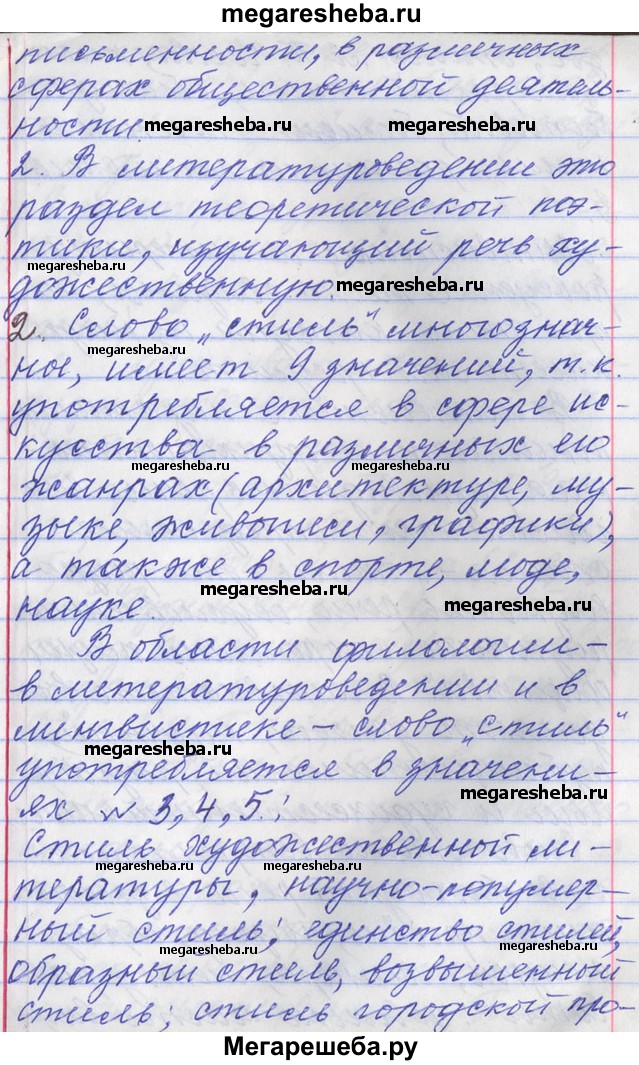 megaresheba.ru
письменности, в различных
сферах общественной деятель-
ности.
megaresheba.ru megaresheba.ru
2. В литературоведении это
раздел теоретической поэ-
тики, изучающий речь ху-
megaresheba.ru
дожественную.
megaresheba.ru
2. Слово „стиль“ многознач-
megaresheba.ru
но, имеет 9 значений, т.к.
употребляется в сфере ис-
кусства в различных его
megaresheba.ru megaresheba.ru
жанрах (архитектуре, му-
зыке, живописи, графики),
а также в спорте, моде,
megaresheba.ru megaresheba.ru
науке.
В области филологии –
в литературоведении и в
лингвистике – слово „стиль“
megaresheba.ru megaresheba.ru
употребляется в значени-
ях № 3, 4, 5.:
Стиль художественной ли-
megaresheba.ru megaresheba.ru
тературы, научно-популяр-
ный стиль; единство стилей,
megaresheba.ru megaresheba.ru
образный стиль, возвышенный
стиль; стиль городской про-
Мегарешеба.ру